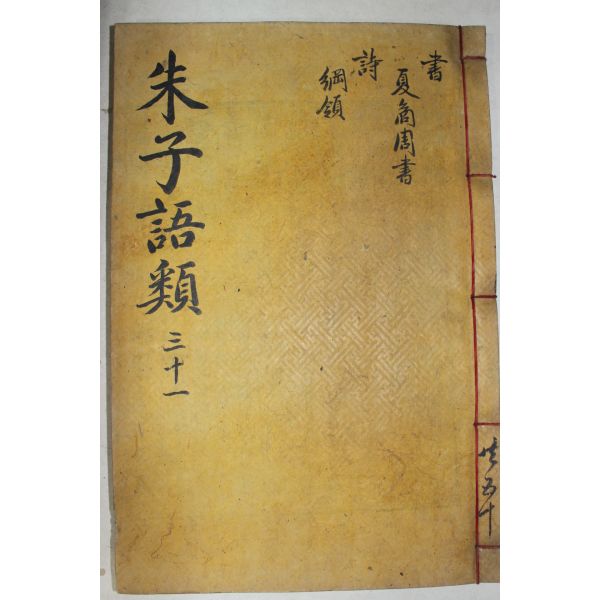 書
夏商周書
詩
綱領
朱子語類 三十一
共五十